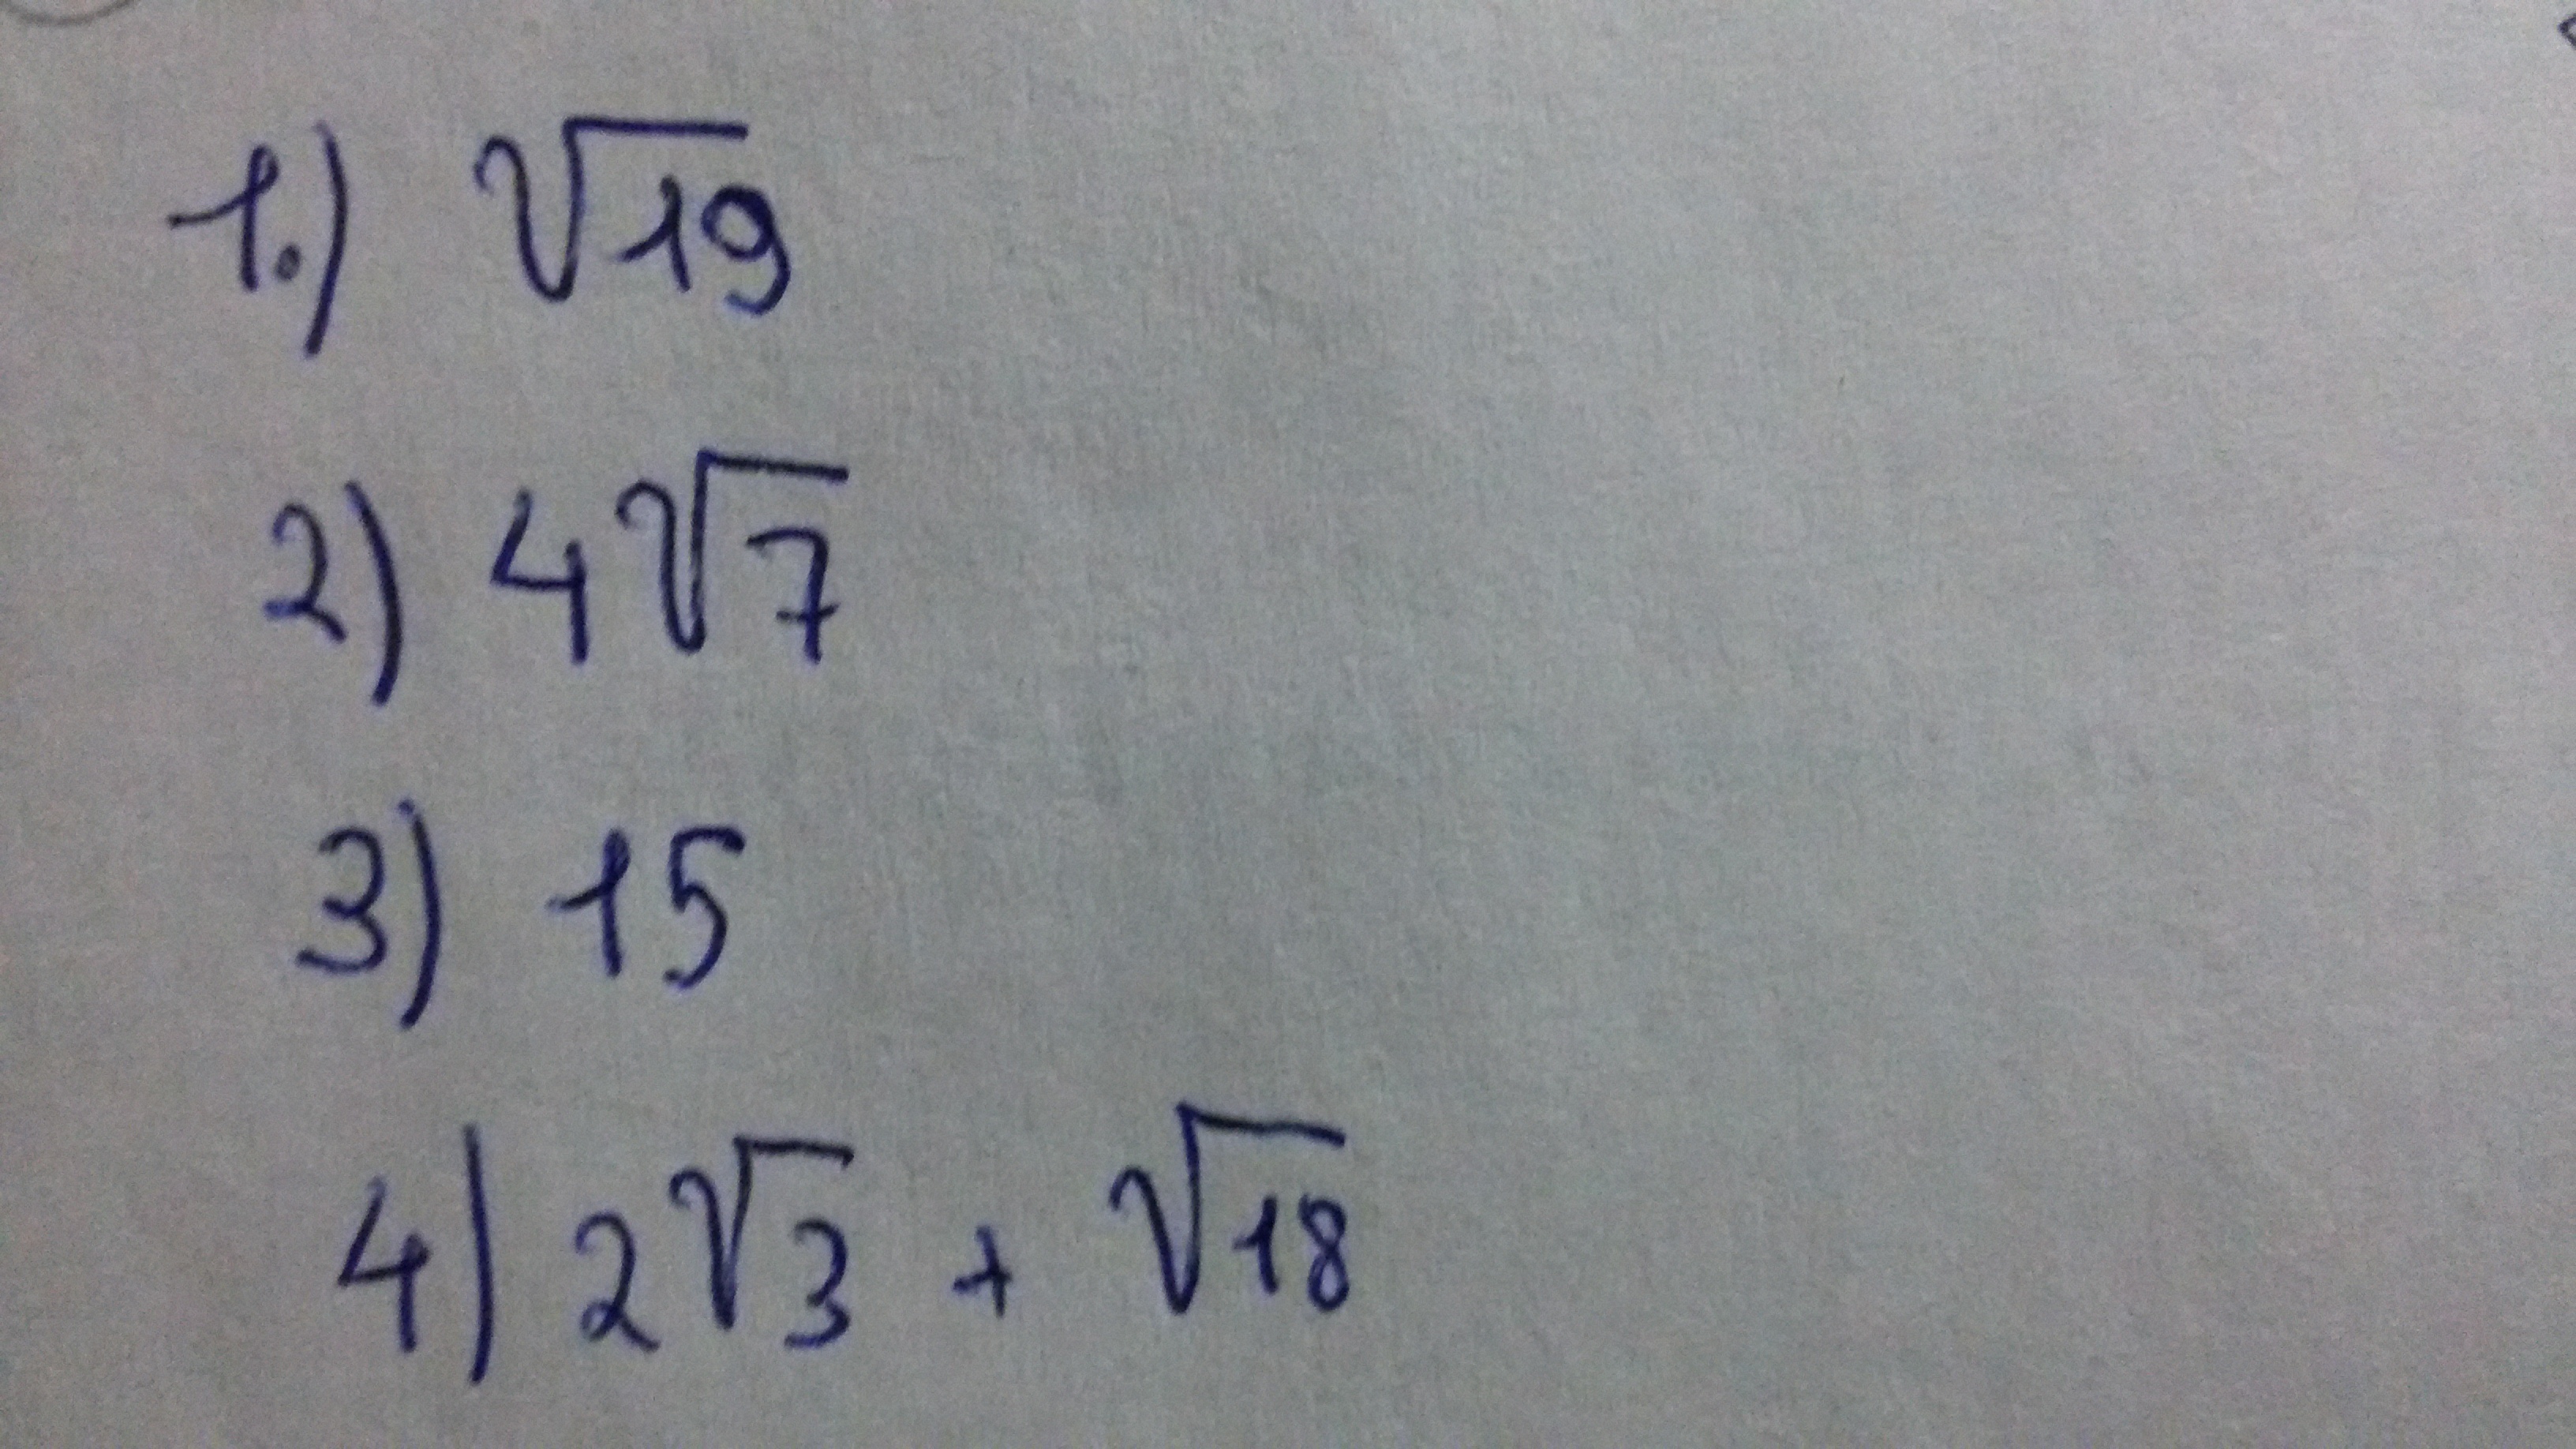 1.) √19
2) 4√7
3) 15
4) 2√3 + √18